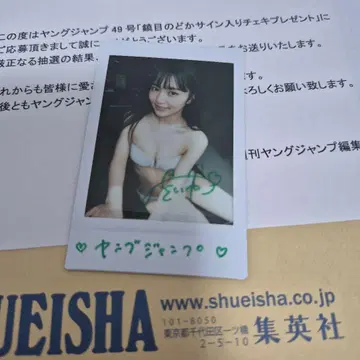 この度はヤングジャンプ 49 号「鏡目のどかサイン入りチェキプレゼント」に
ご応募頂きまして誠に
ございます。
厳正なる抽選の結果、
をお送りいたします。
れからも皆様に愛
ます。
後ともヤングジャンプ
よろしくお願い致します。
刊ヤングジャンプ編集
♡ ヤングジャンプ ♡
SHUEISHA
www.shueisha.co.jp
101-8050
東京都千代田区一ツ橋
2-5-10
集英社